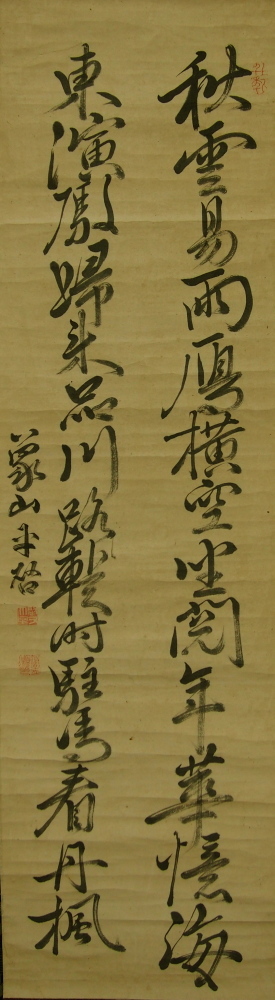 秋雲易雨鴈横空坐閲年華憶海
東演歸来品川路暫時駐馬看丹楓
象山平啓